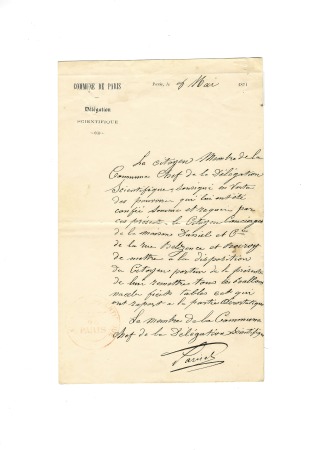 COMMUNE DE PARIS
Délégation
SCIENTIFIQUE
Paris, le Mai 1871
Le citoyen Membre de la
Commune Chef de la Délégation
Scientifique, soussigné en vertu
des pouvoirs qui lui ont été
conférés somme et requiert par
ces présentes le Citoyen
de la maison Daniel et Cie
de la rue et
de mettre à la disposition
du Citoyen porteur de la présente
de leur remettre tous les ballons
nacelle tables et ce qui
ont raport à la partie Aérostatique
Le membre de la Commune
chef de la Délégation Scientifique
Parisel